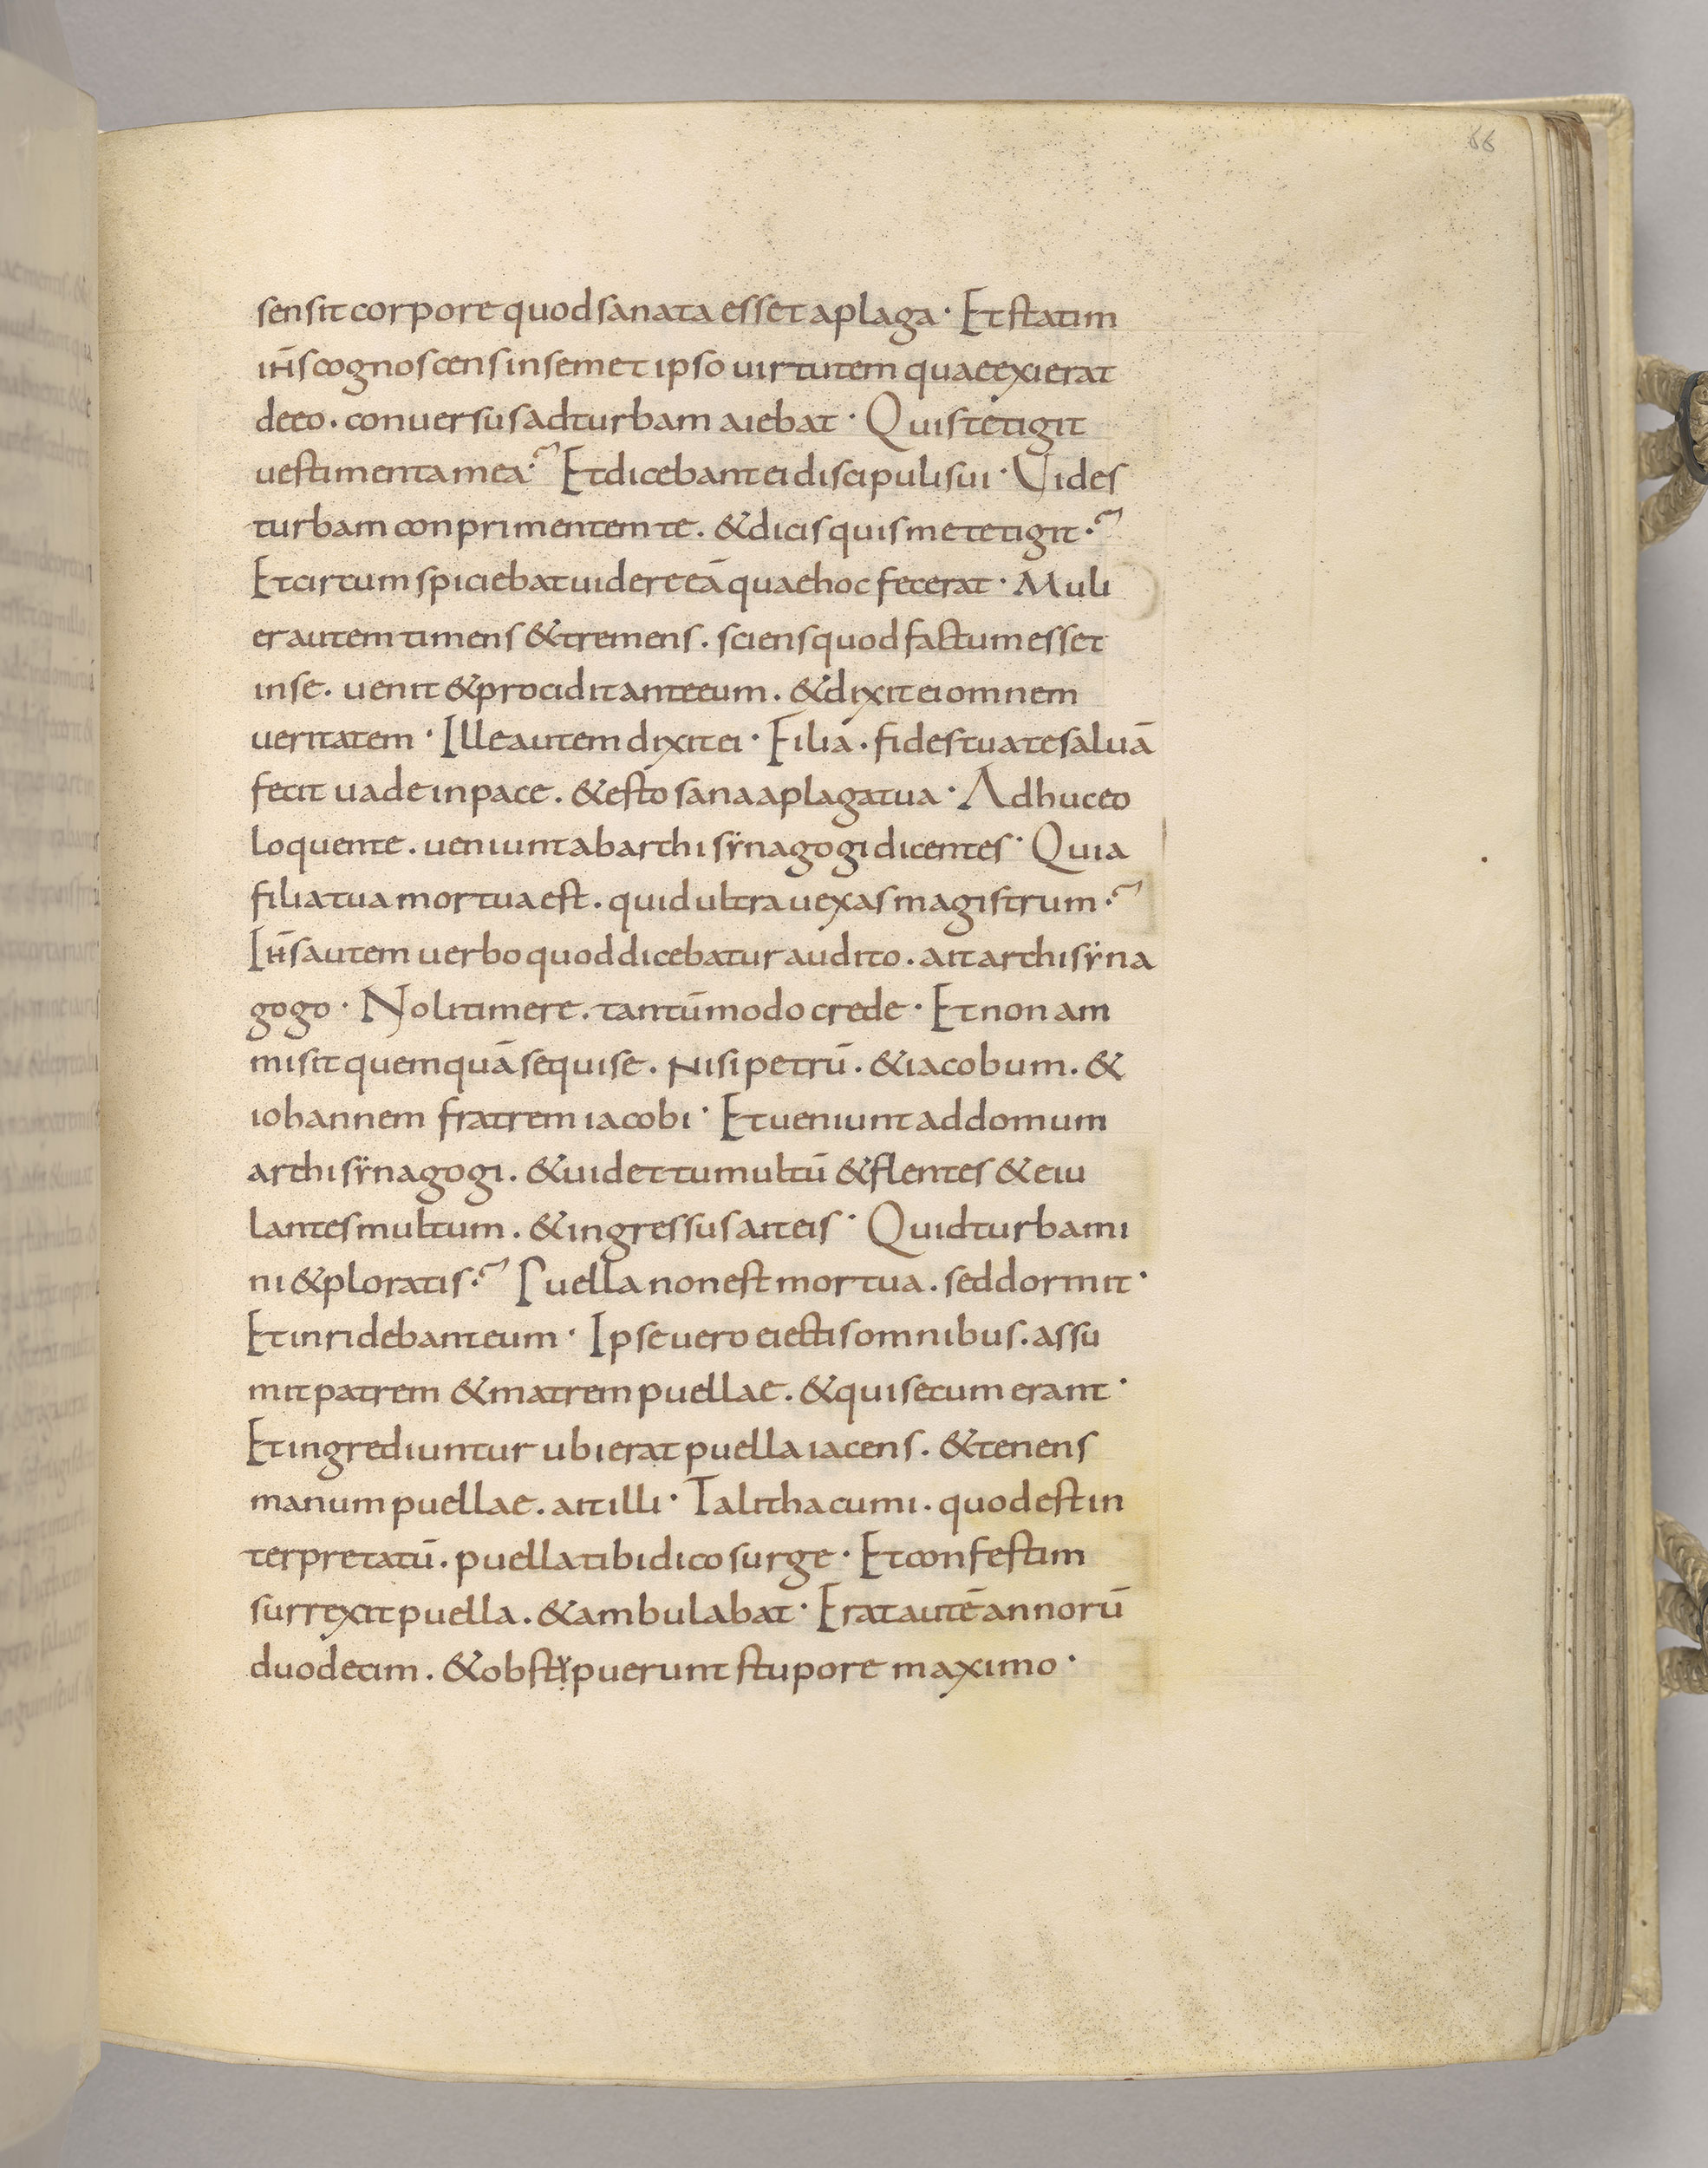 66
sensit corpore quod sanata esset a plaga · Et statim
ihs̄ cognoscens in semet ipso uirtutem quae exierat
de eo . conuersus ad turbam aiebat · Quis tetigit
uestimenta mea ·? Et dicebant ei discipuli sui · Vides
turbam conprimentem te . & dicis quis me tetigit ·?
Et circumspiciebat uidere eā quae hoc fecerat · Muli
er autem timens & tremens . sciens quod factum esset
in se . uenit & procidit ante eum . & dixit ei omnem
ueritatem · Ille autem dixit ei · Filia . fides tua te saluā
fecit uade in pace . & esto sana a plaga tua · Adhuc eo
loquente . ueniunt ab archisẏnagogi dicentes · Quia
filia tua mortua est . quid ultra uexas magistrum ·?
Ihs̄ autem uerbo quod dicebatur audito . ait archisẏna
gogo · Noli timere . tantūmodo crede · Et non am
misit quemquā sequi se . Nisi petrū . & iacobum . &
iohannem fratrem iacobi · Et ueniunt ad domum
archisẏnagogi . & uidet tumultū & flentes & eiu
lantes multum . & ingressus ait eis · Quid turbami
ni & ploratis ·? Puella non est mortua . sed dormit ·
Et inridebant eum · Ipse uero eiectis omnibus . assu
mit patrem & matrem puellae . & qui secum erant ·
Et ingrediuntur ubi erat puella iacens . & tenens
manum puellae . ait illi · Talitha cumi . quod est in
terpretatū . puella tibi dico surge · Et confestim
surrexit puella . & ambulabat · Erat autē annorū
duodecim . & obstẏpuerunt stupore maximo ·